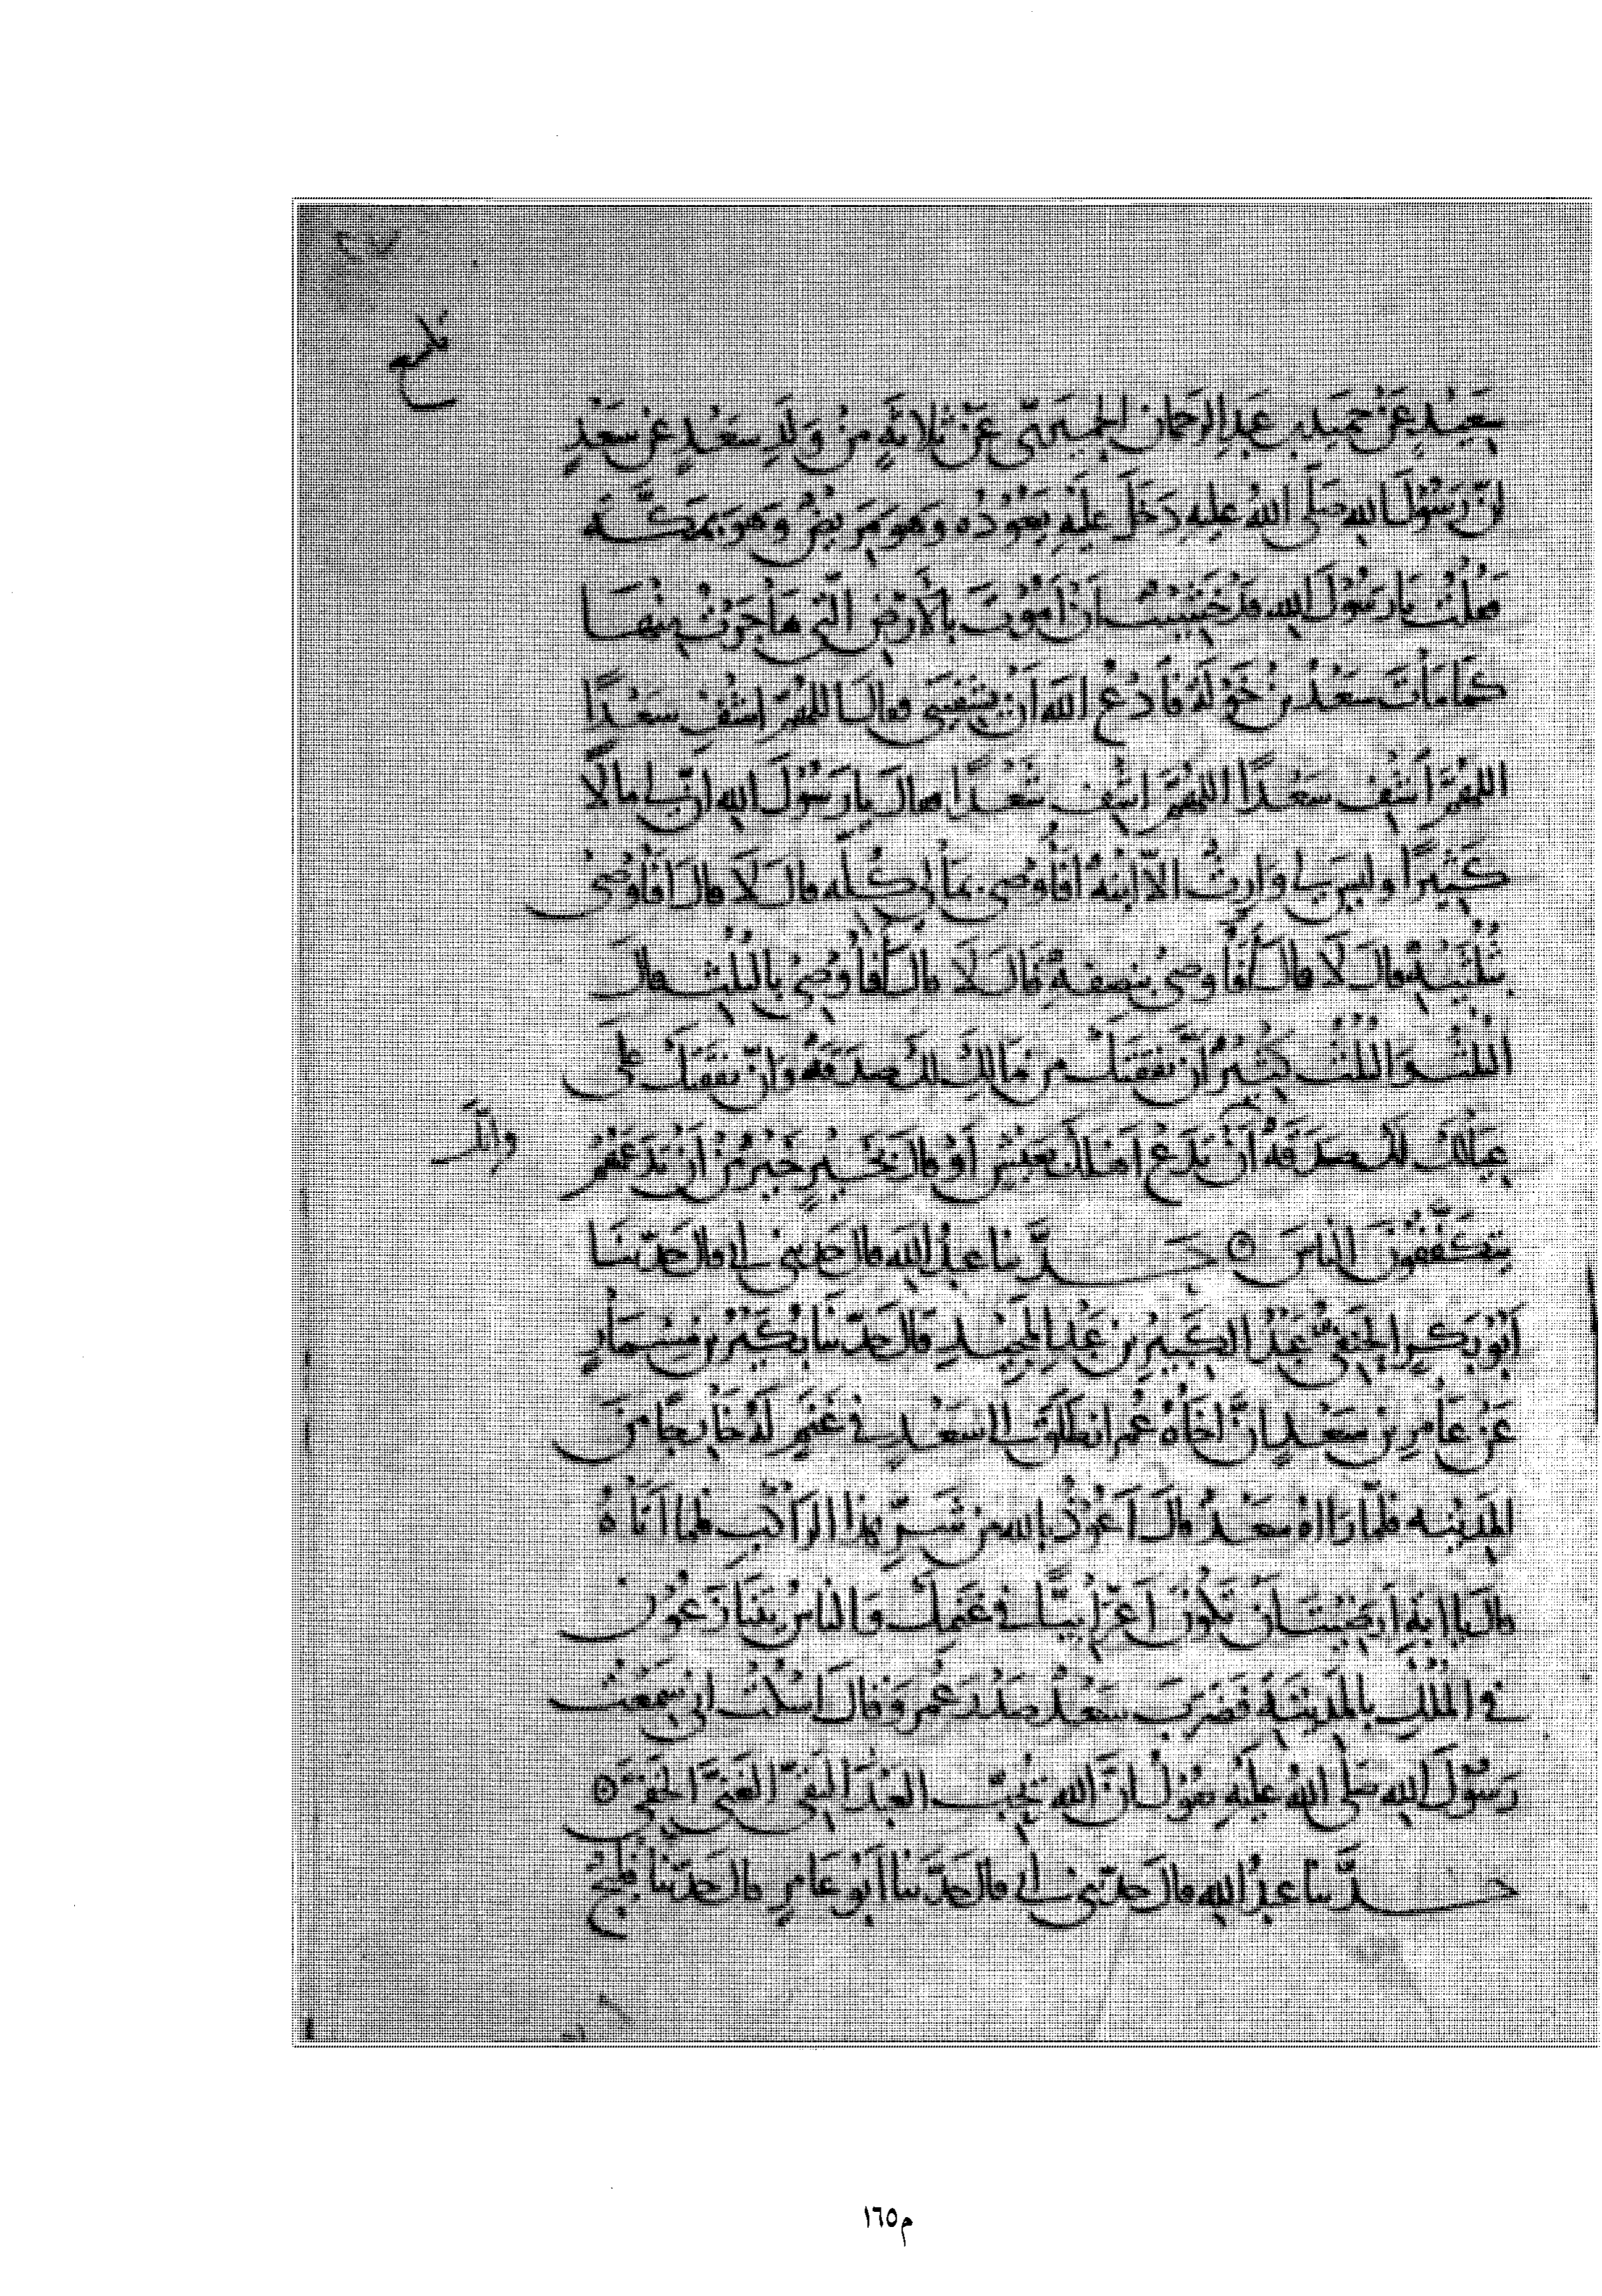 ٢٧
سَعِيدٍ عَنْ حُمَيد بن عَبدِ الرَحمان الحِمْيَرىّ عَنْ ثلاثَةٍ مِنْ وَلَدِ سَعْدٍ عَن سَعْدٍ
انّ رَسُولَ الله صَلَّى اللهُ عليه دَخَلَ عَلَيْهِ يَعُوْدُه وهو مَرِيضٌ وَهو بمَكَّةَ
فقلتُ يا رَسُوْلَ الله قد خَشِيْتُ اَنْ اَمُوْتَ بِالأرْضِ الّتى هَاجَرْتُ مِنْهَا
كَمَا مَاتَ سَعْدُ بنُ خَوْلَةَ فَادْعُ الله اَنْ يَشْفِيَنى فقالَ اللهُمّ اشْفِ سَعْدًا
اللهُمّ اشْفِ سَعْدًا اللهُمّ اشْفِ سَعْدًا فقالَ يا رَسُوْلَ الله اِنّ لى مالًا
كَثِيْرًا وليسَ لى وَارِثٌ الاّ ابْنَةٌ افَأُوصِى بمَالى كُلّه قالَ لَا قالَ اَفَأُوْصِى
بِثُلُثَيْهِ قالَ لَا قالَ اَفَأُوصِى بنصفهِ قَالَ لَا قالَ اَفَأُوْصِى بالثُلُثِ قالَ
الثُلُثُ وَالثُلُثُ كَثِيْرٌ اِنَّ نَفَقَتَكَ مِن مَالِكَ لكَ صَدَقَةٌ وَاِنّ نَفَقَتَكَ عَلى
عِيَالِكَ لكَ صَدَقَةٌ اَنْ تَدَعَ اهْلَكَ بِعَيْشٍ اَوْ قالَ بخَيْرٍ خَيْرٌ مِنْ اَنْ تَدَعَهُمْ
وانّك
يَتَكَفَّفُوْنَ الناسَ ۞ حَدَّثنا عبدُ الله قال حَدّثنى أبى قال حَدّثنَا
اَبُوْ بَكرٍ الحَنَفىُّ عَبْدُ الكَبِيْرِ بن عَبْدِ المَجِيْدِ قال حَدّثنَا بُكَيْرُ بن مِسْمَارٍ
عَنْ عَامِرِ بن سَعْدٍ اَنَّ اخَاهُ عُمَر انطَلَقَ الى سَعْدٍ فى غَنَمٍ لَهُ خَارِجًا مِنَ
المَدِيْنَه فلمّا رَااهُ سَعْدٌ قالَ اَعُوْذُ بالله مِن شَرِّ هذا الرَاكِبِ فلما اَتَاهُ
قالَ يا ابَه اَرَضِيْتَ اَنْ تكُوْنَ اَعْرَابِيًّا فى غَنَمِكَ وَالناسُ يَتَنَازَعُوْنَ
فى المُلْكِ بالمَدِيْنَةِ فَضَرَبَ سَعْدٌ صَدْرَ عُمَر وَقالَ اسْكُتْ انى سَمِعْتُ
رَسُوْلَ الله صَلى اللهُ عَلَيْهِ يَقُوْلُ انَّ الله يُحِبّ العَبْدَ التَقىّ الغَنِىّ الخَفِىّ ۞
حَدَّثنا عبدُ الله قالَ حَدّثنى أبى قالَ حَدَّثَنا اَبُوْ عَامِرٍ قالَ حَدّثنَا فُلَيْحٌ
م١٦٥